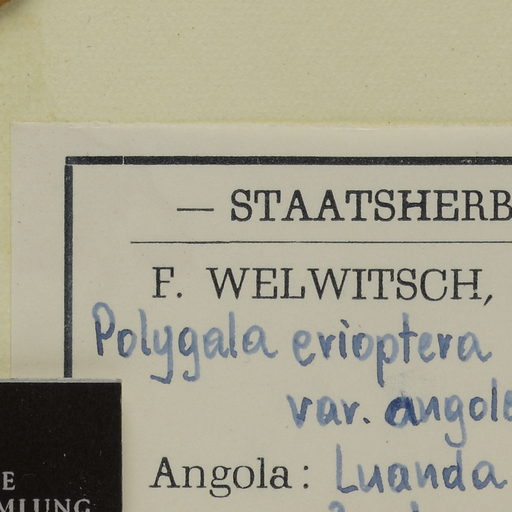 — STAATSHERB
F. WELWITSCH,
Polygala erioptera
var. angole
Angola: Luanda
E
MLUNG